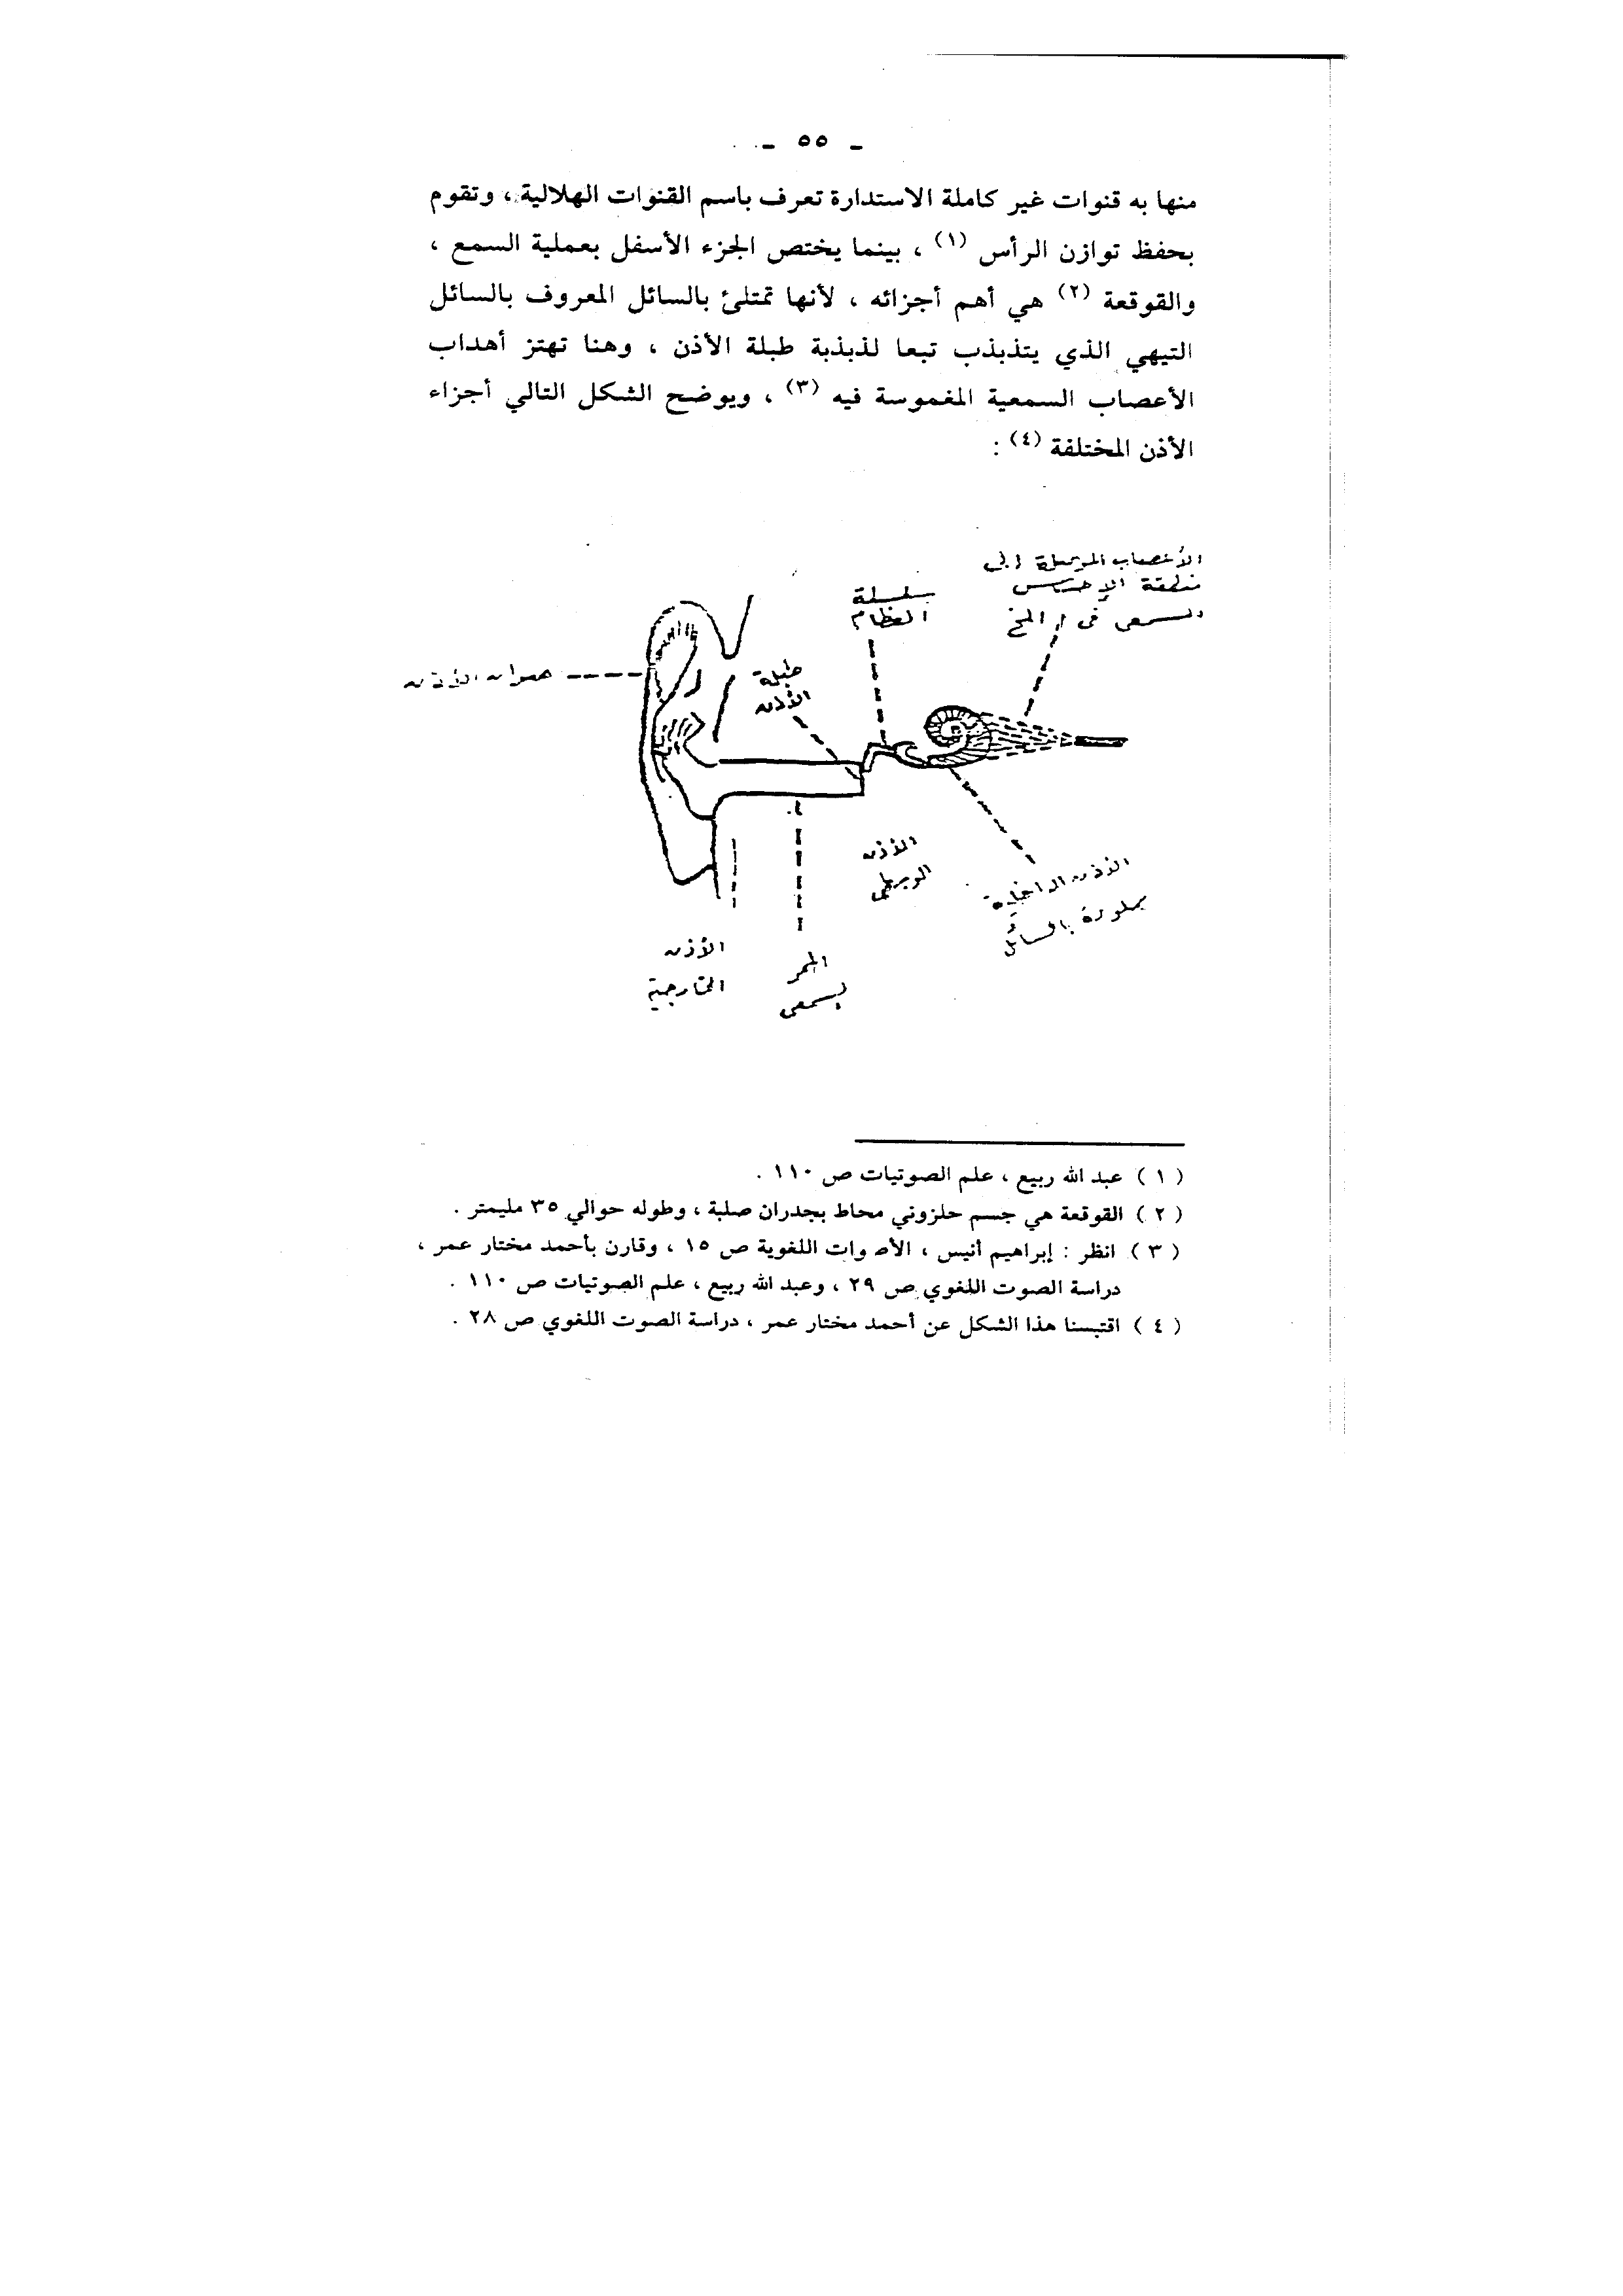 ـ ٥٥ ـ
منها به قنوات غير كاملة الاستدارة تعرف باسم القنوات الهلالية ، وتقوم
بحفظ توازن الرأس (١) ، بينما يختص الجزء الأسفل بعملية السمع ،
والقوقعة (٢) هي أهم أجزائه ، لأنها تمتلئ بالسائل المعروف بالسائل
التيهي الذي يتذبذب تبعا لذبذبة طبلة الأذن ، وهنا تهتز أهداب
الأعصاب السمعية المغموسة فيه (٣) ، ويوضح الشكل التالي أجزاء
الأذن المختلفة (٤) :
الأعصاب الموصلة إلى
منطقة الإحساس
السمعى فى المخ
سلسلة
العظام
طبلة
الأذن
صوان الأذن
الأذن
الوسطى
الأذن الداخلية
مملوءة بالسائل
الأذن
الخارجية
الممر
السمعى
( ١ ) عبد الله ربيع ، علم الصوتيات ص ١١٠ .
( ٢ ) القوقعة هي جسم حلزوني محاط بجدران صلبة ، وطوله حوالي ٣٥ مليمتر .
( ٣ ) انظر : إبراهيم أنيس ، الأصوات اللغوية ص ١٥ ، وقارن بأحمد مختار عمر ،
دراسة الصوت اللغوي ص ٢٩ ، وعبد الله ربيع ، علم الصوتيات ص ١١٠ .
( ٤ ) اقتبسنا هذا الشكل عن أحمد مختار عمر ، دراسة الصوت اللغوي ص ٢٨ .